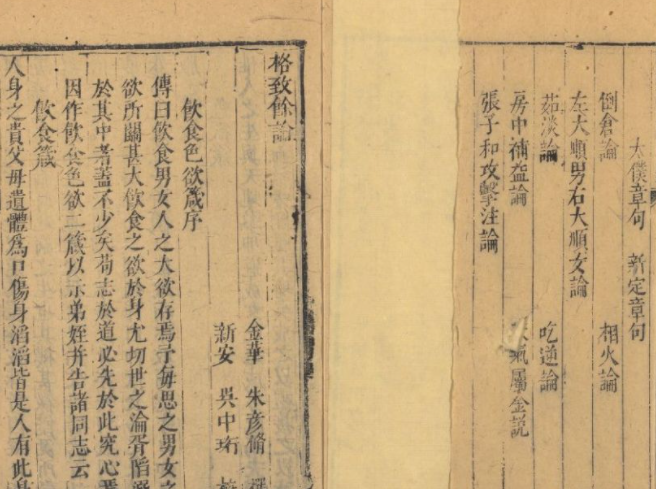 太僕章句 新定章句
倒倉論 相火論
左大順男右大順女論
茹淡論 吃逆論
房中補益論 氣屬金說
張子和攻擊注論
格致餘論
金華 朱彥脩 撰
新安 吳中珩
飲食色欲箴序
傳曰飲食男女人之大欲存焉予每思之男女之
欲所關甚大飲食之欲於身尤切世之淪胥陷溺
於其中者蓋不少矣苟志於道必先於此究心焉
因作飲食色欲二箴以示弟姪并告諸同志云
飲食箴
人身之貴父母遺體爲口傷身滔滔皆是人有此身